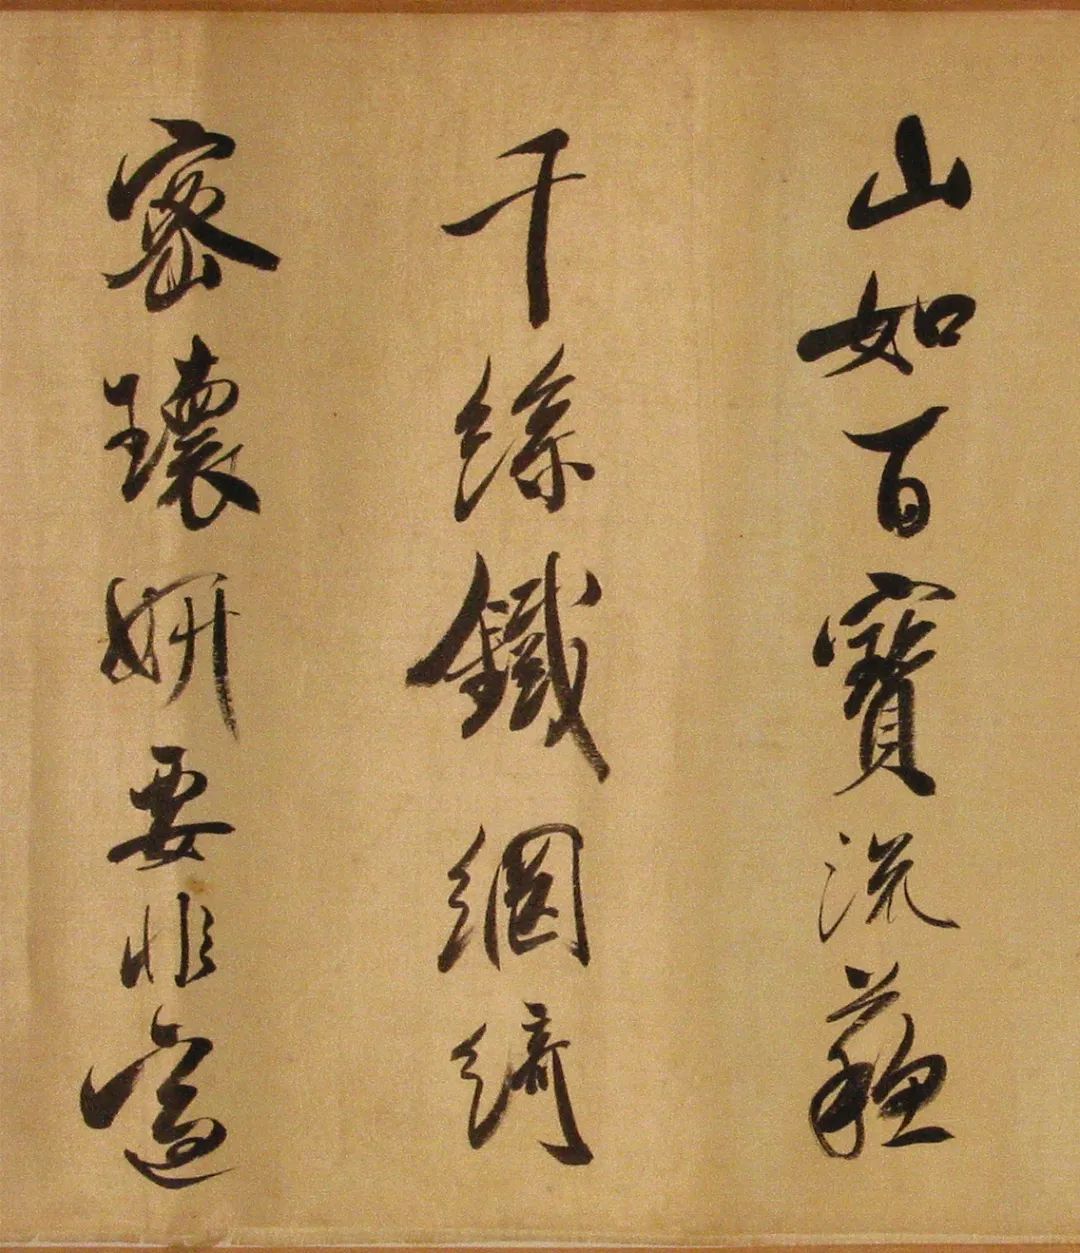 山如百寶流蘇
千絲鐵網綺
密瓌妍要非適